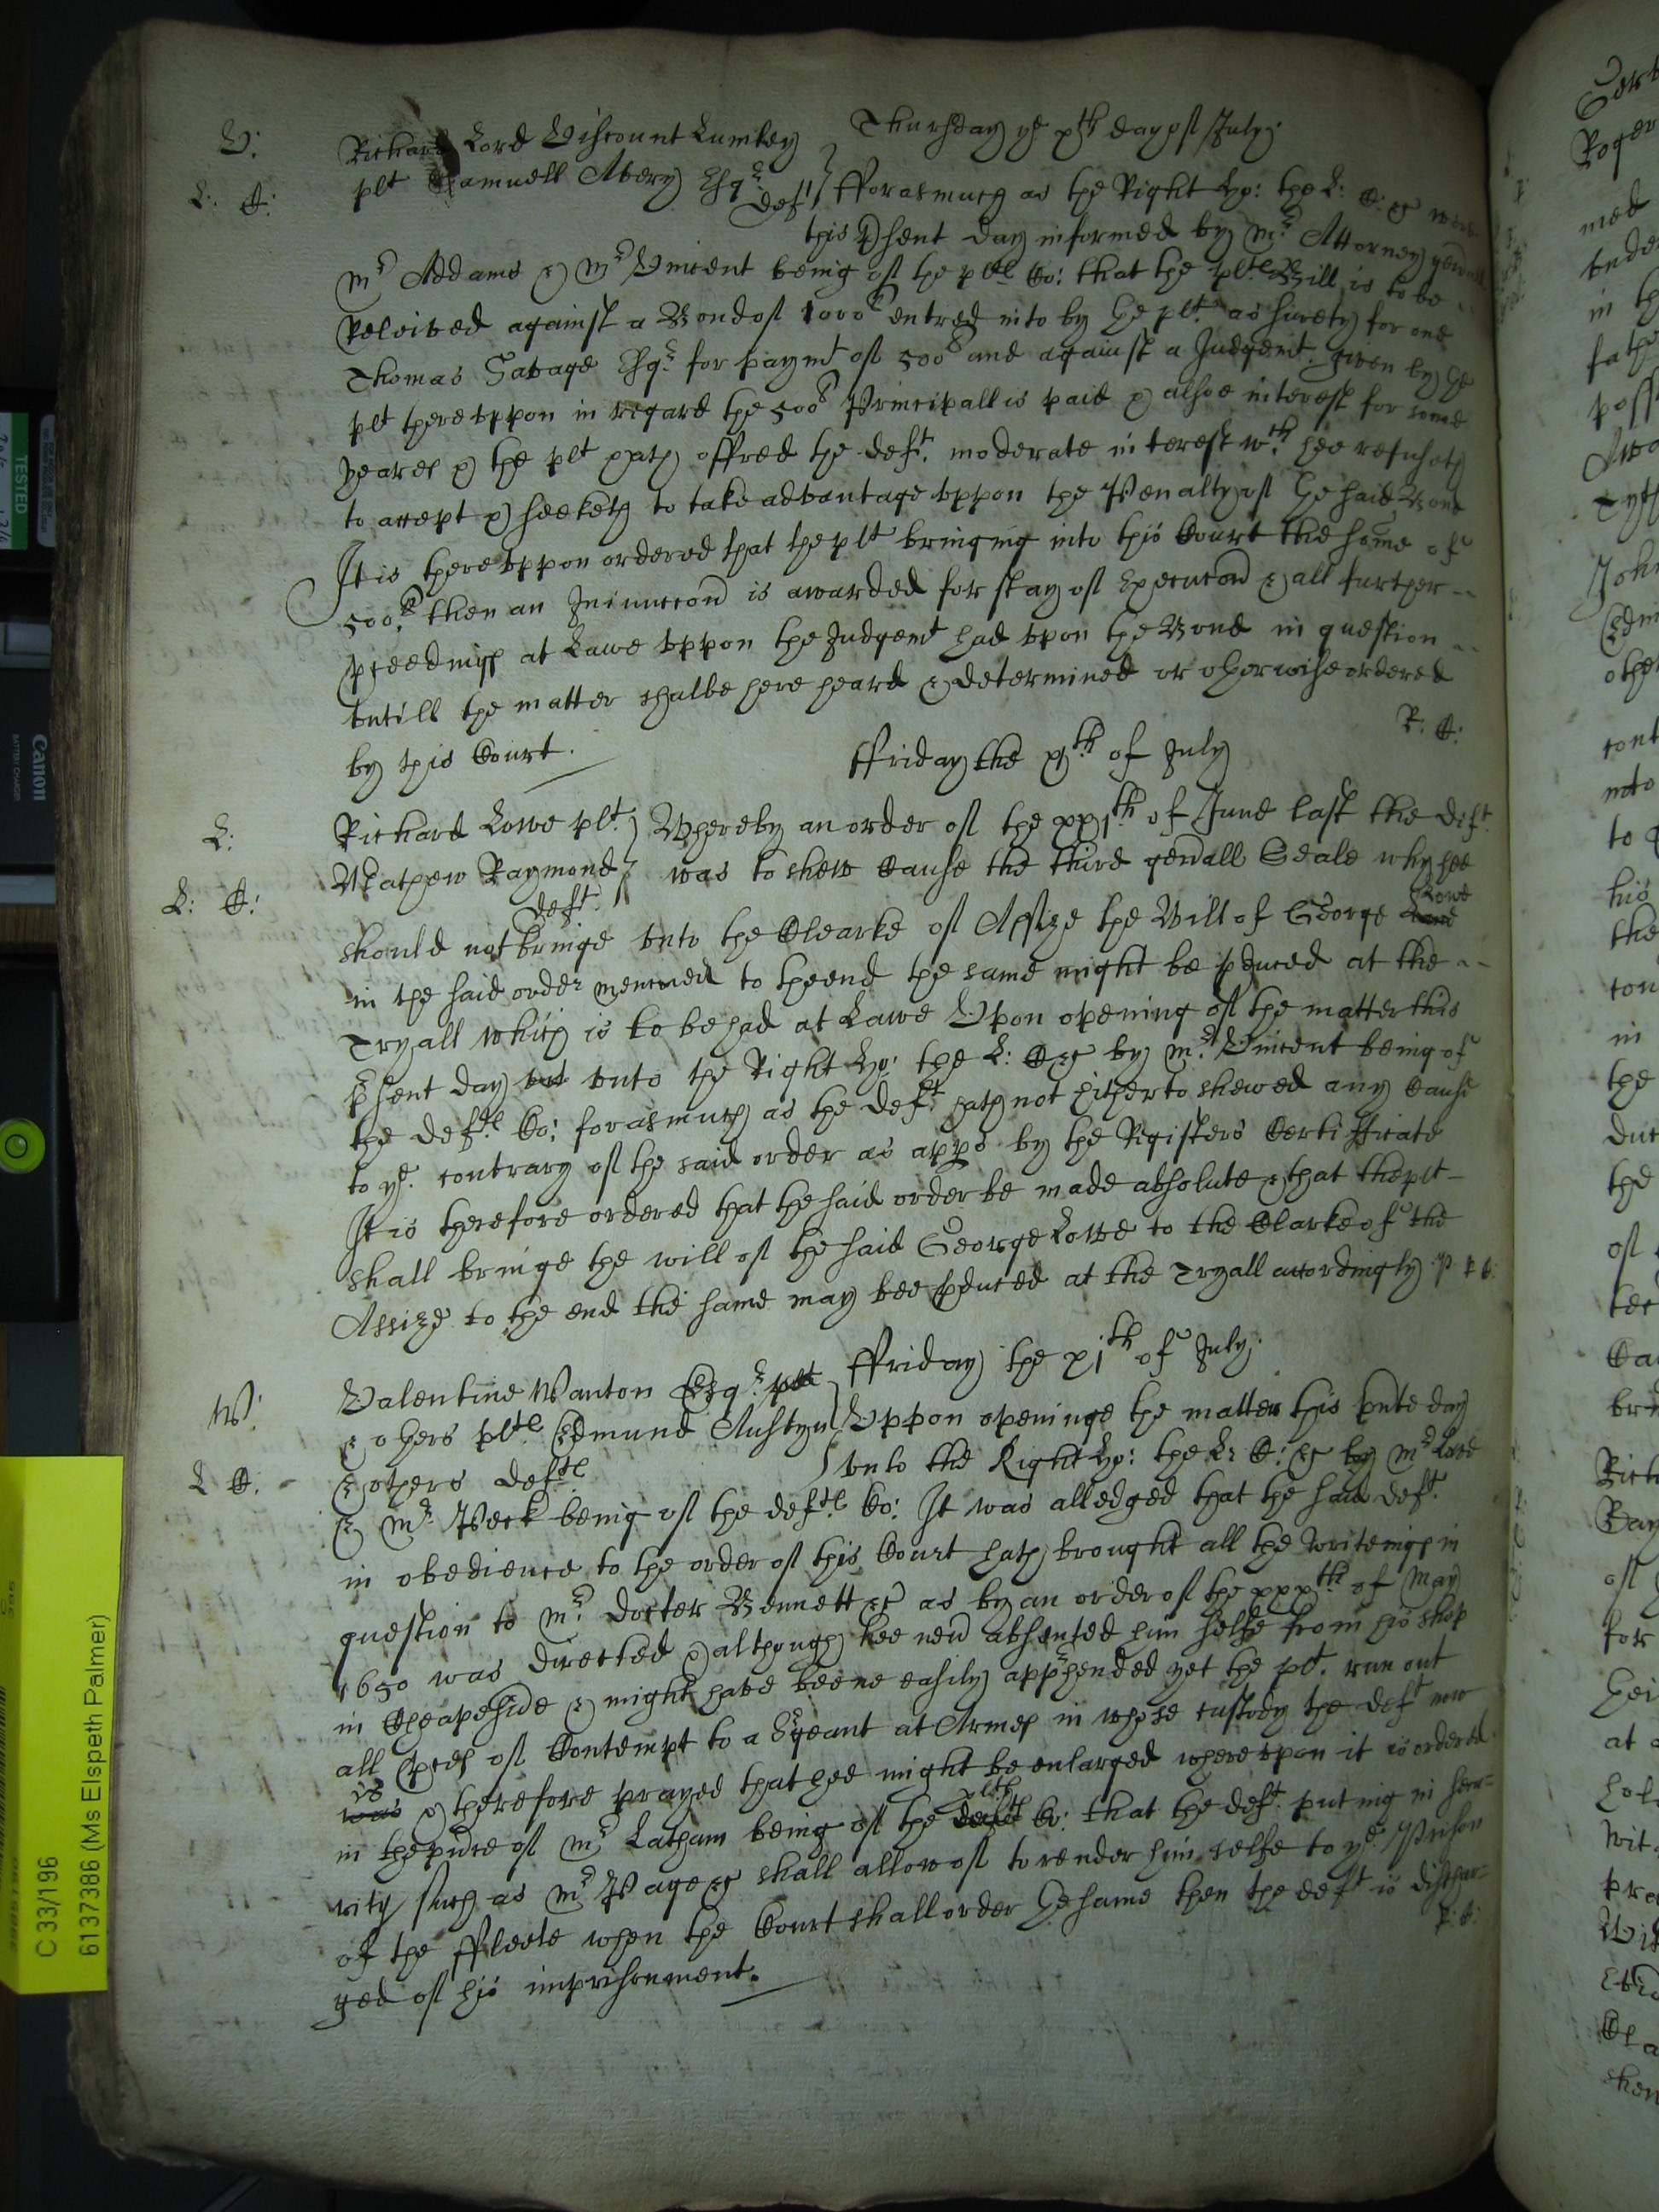 Thursday ye xth day of July.
V:
Richard Lord Viscount Lumley
plt Samuell Avery Esqr
deft
L: C:
fforasmuch as the Right Ho: the L: C: &c were
this psent day informed by Mr Attorney gen'all
Mr Addams & Mr Vincent being of the plts Co: that the plts Bill is to be
Releived against a Bond of 1000l entred into by the plt as surety for one
Thomas Savage Esqr for paymt of 500l and against a Judgemt given by the
plt thereuppon in regard the 500l Principall is paid & alsoe interest for some
yeares & the plt hath offred the deft moderate interest wch hee refuseth
to accept & seeketh to take advantage uppon the Penalty of the said Bond
It is thereuppon ordered that the plt bringing into this Court the some of
500l then an Iniunccon is awarded for stay of Execucon & all further --
pceedings at Lawe uppon the Judgemt had upon the Bond in question --
untill the matter shalbe here heard & determined or otherwise ordered
by this Court.
R: C:
ffriday the xjth of July
L:
Richard Lowe plt
Mathew Raymond
deft
L: C:
Whereby an order of the xxjth of June last the deft
was to shew Cause the third gen'all Seale why hee
should not bringe unto the Clearke of Assize the Will of George Lane Lowe
in the said order menconed to the end the same might be pduced at the --
Tryall which is to be had at Lawe Upon opening of the matter this
psent day but unto the Right Ho: the L: C: &c by Mr Vincent being of
the defts Co: forasmuch as the deft hath not hitherto shewed any Cause
to ye contrary of the said order as appes by the Registers Certifficate
It is therefore ordered that the said order be made absolute & that the plt -
shall bringe the will of the said George Lowe to the Clarke of the
Assize to the end the same may bee pduced at the Tryall accordingly
ffriday the xjth of July.
W:
Valentine Wanton Esqr plt
& others plts Edmund Austyn
& others defts
L C:
Uppon openinge the matter this pnte day
unto the Right Ho: the L: C: &c by Mr Love
& Mr Peck being of the defts Co: It was alledged that the said deft
in obedience to the order of this Court hath brought all the writeings in
question to Mr docter Bennett &c as by an order of the xxxth of May
1650 was directed & although hee nev'r absented him selfe from his shop
in Cheapeside & might have beene easily apprhended yet the plt. run out
all pces of Contempt to a Srgeant at Armes in whose custody the deft now
was is & therefore prayed that hee might be enlarged whereupon it is ordered
in the pnce of Mr Latham being of the defts plts Co: that the deft puting in secu-
rity such as Mr Page &c shall allow of to render him selfe to ye Prison
of the ffleete when the Court shall order the same then the deft is dischar-
ged of his imprisonment.
R: C:
C 33/196
61377386 (Ms Elspeth Palmer)
TESTED
Canon
BATTERY CHARGER